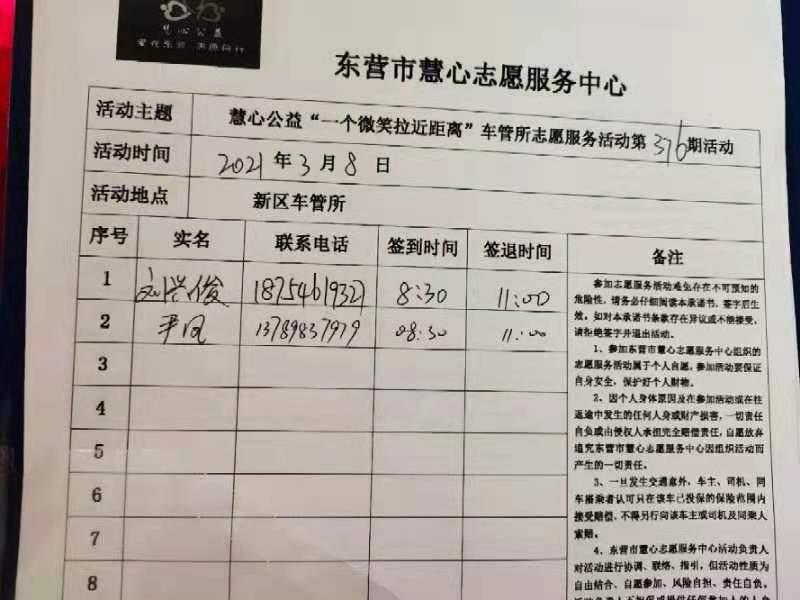 慧心公益
爱在东营 志愿同行
东营市慧心志愿服务中心
活动主题 慧心公益“一个微笑拉近距离”车管所志愿服务活动第376期活动
活动时间 2021年3月8日
活动地点 新区车管所
序号 实名 联系电话 签到时间 签退时间 备注
1 刘兴俊 18754619327 8:30 11:00
2 尹凤 13789837979 08:30 11:00
3
4
5
6
7
8
参加志愿服务活动难免存在不可预知的
危险性,请务必仔细阅读本承诺书,签字后生
效。如对本承诺书条款存在异议或不能接受,
请拒绝签字并退出活动。
1、参加东营市慧心志愿服务中心组织的
志愿服务活动属于个人自愿,参加活动要保证
自身安全,保护好个人财物。
2、因个人身体原因及在参加活动或在往
返途中发生的任何人身或财产损害,一切责任
自负或由侵权人承担完全赔偿责任,自愿放弃
追究东营市慧心志愿服务中心因组织活动而
产生的一切责任。
3、一旦发生交通意外,车主、司机、同
车搭乘者认可只在该车已投保的保险范围内
接受赔偿,不得另行向该车主或司机及同乘人
索赔。
4、东营市慧心志愿服务中心活动负责人
对活动进行协调、联络、指引,但活动性质为
自由结合、自愿参加、风险自担、责任自负。